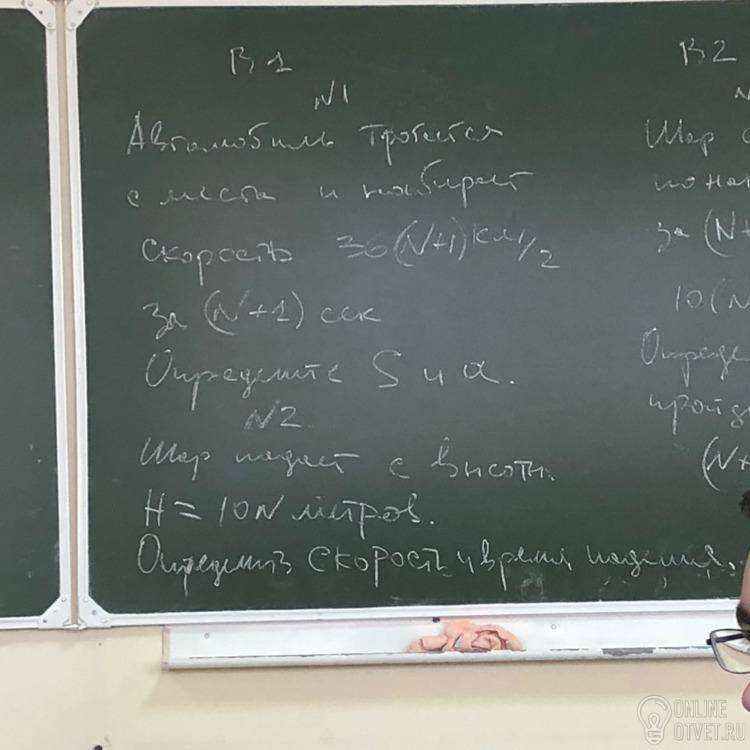 В1
N1
Автомобиль трогается
с места и набирает
скорость 36(N+1) км/г
за (N+1) сек
Определите S и а.
N2
Шар падает с высоты
H = 10N метров.
Определить скорость и время падения.
В2
N
Шар с
по на
за (N+
10(N
Определ
пройд
(N+
ONLINE
OTVET.RU